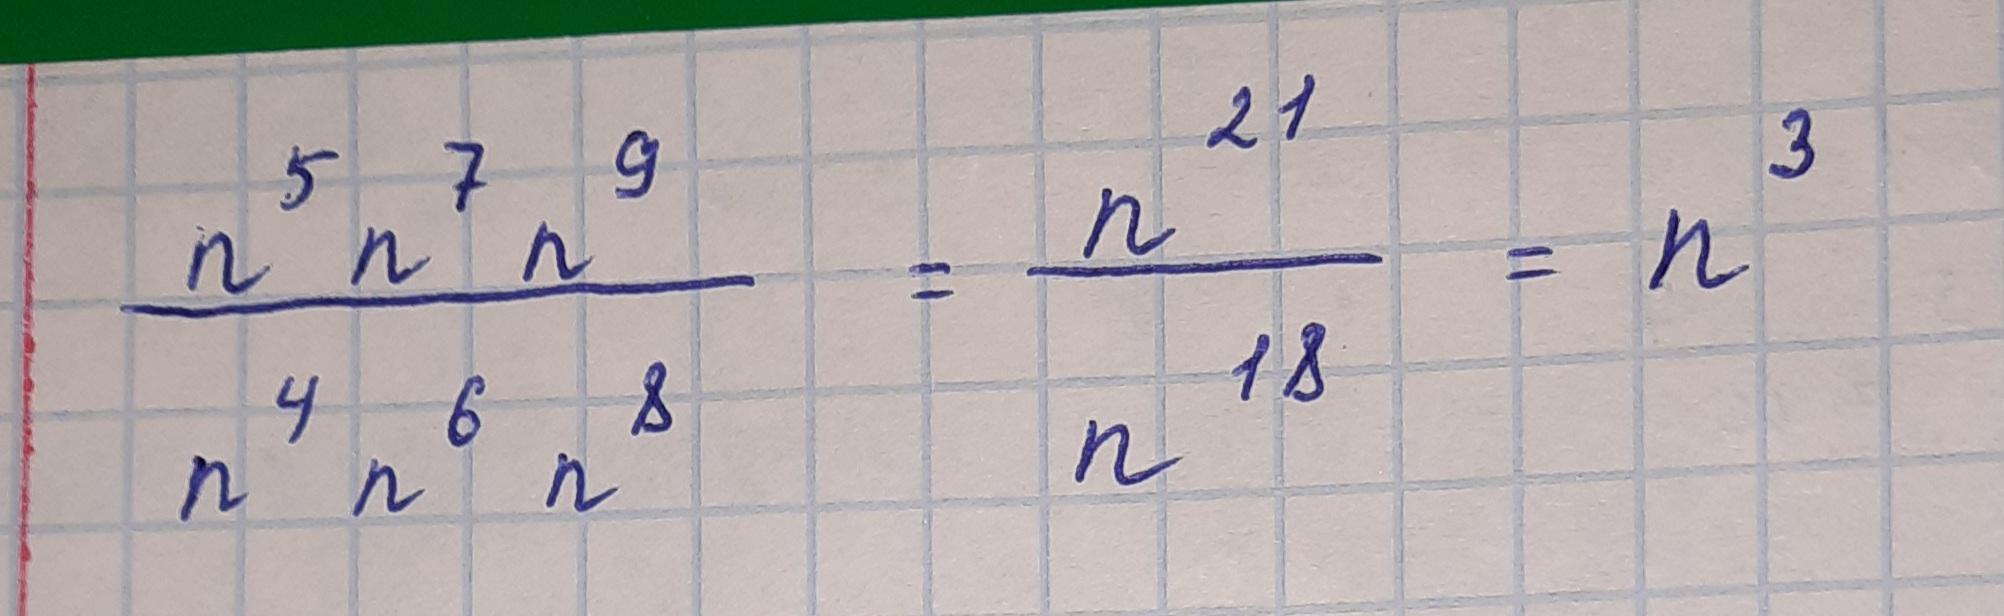 n⁵ n⁷ n⁹ / n⁴ n⁶ n⁸ = n²¹ / n¹⁸ = n³